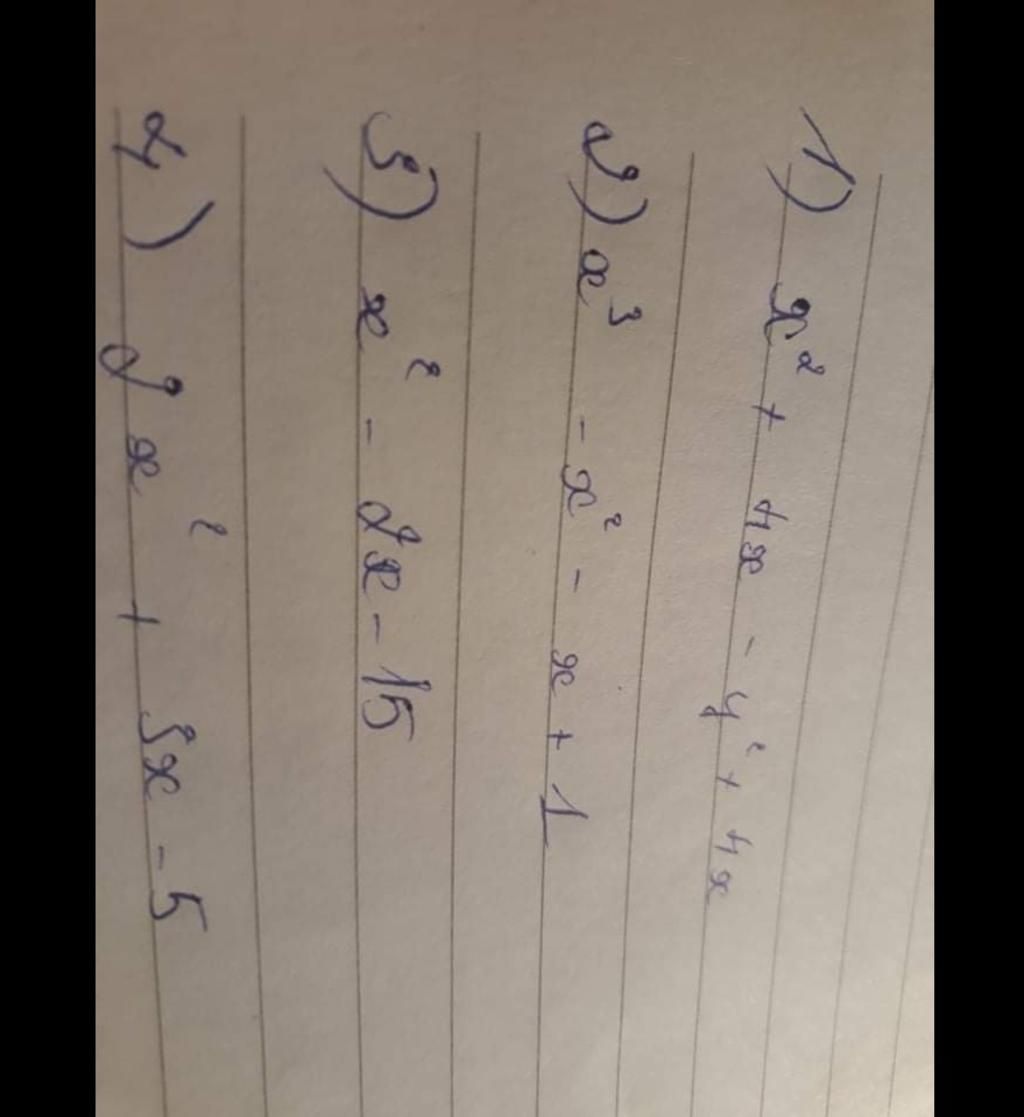 1) x² + 4x - y² + 4x
2) x³ - x² - x + 1
3) x² - 2x - 15
4) 2x² + 3x - 5